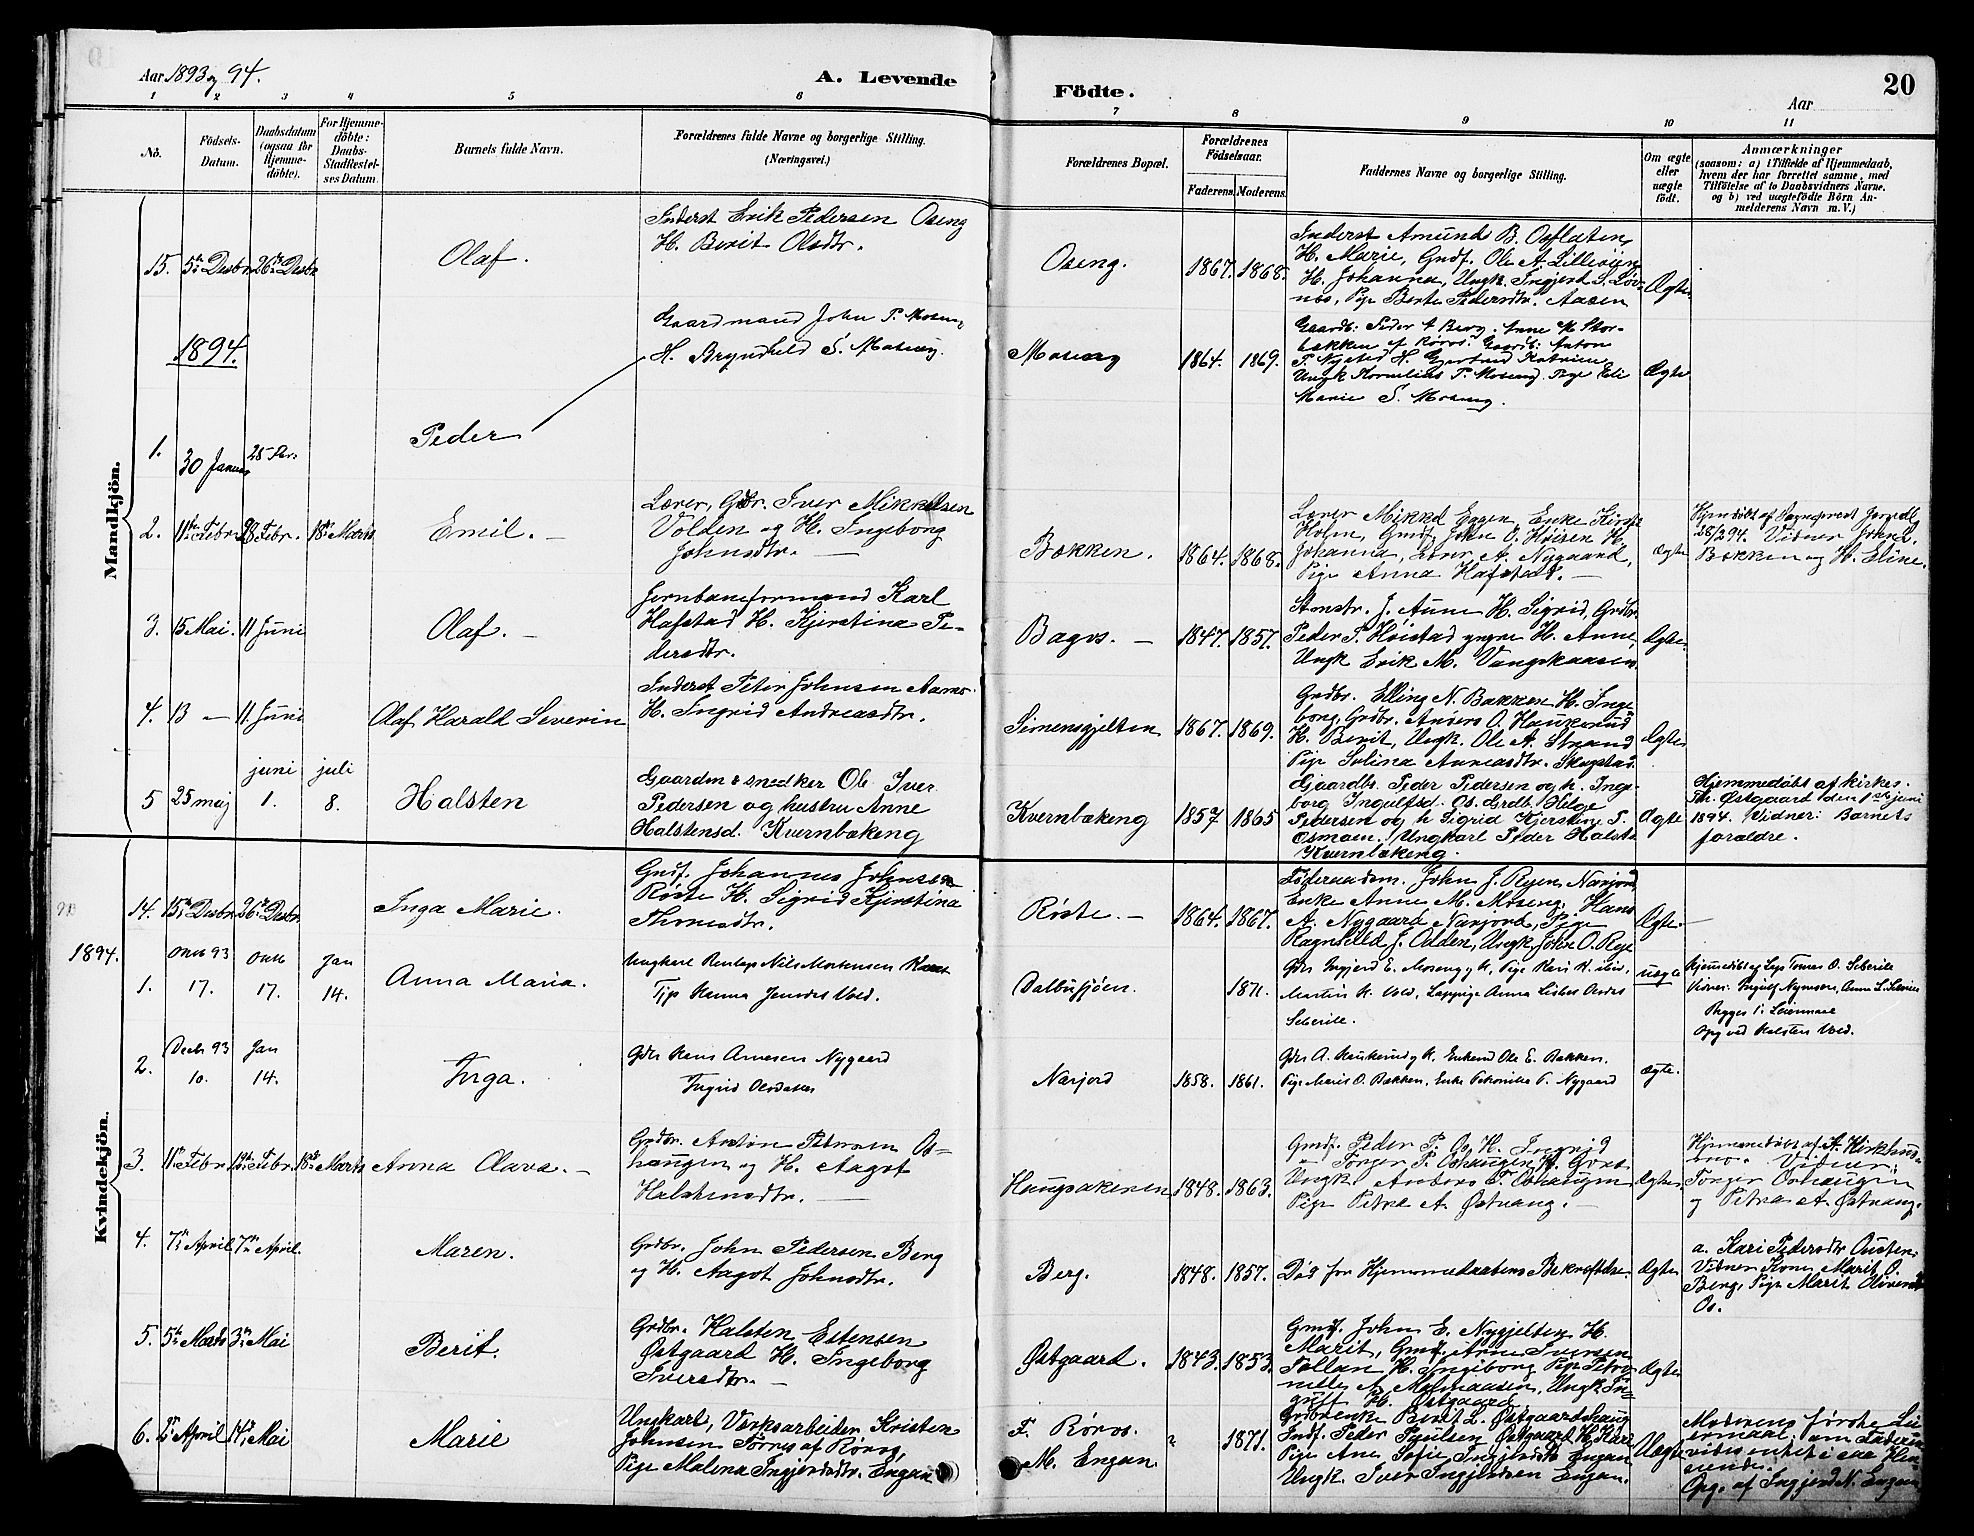 Aar 1893 og 94.
A. Levende
Födte.
20
Aar
1 2 3 4 5 6 7 8 9 10 11
No.
Födsels-
Datum.
Daabsdatum
(ogsaa för
Hjemme-
döbte).
For Hjemme-
döbte:
Daabs-
Stadfæstel-
ses Datum.
Barnets fulde Navn.
Forældrenes fulde Navne og borgerlige Stilling.
(Næringsvei.)
Forældrenes Bopæl.
Forældrenes
Födselsaar.
Faderens. Moderens.
Faddernes Navne og borgerlige Stilling.
Om ægte
eller
uægte
födt.
Anmærkninger
(saasom: a) i Tilfælde af Hjemmedaab,
hvem der har forrettet samme, med
Tilföielse af to Daabsvidners Navne.
og b) ved uægtefödte Börn An-
melderens Navn m. V.)
Mandkjön.
15. 5te Desbr. 26de Desbr.
Olaf.
Inderst Erik Pedersen Oseng
H. Berit Olsdtr.
Oseng.
1867. 1868.
Inderst Amund B. Osflaten,
H. Marie, Gmdf. Ole A. Lilleöien
H. Johanna, Ungk. Ingjerd S. Löv-
nes, Pige Berte Pedersdtr. Aasen
Ægte
1894.
1. 30 Januar 25 Feb.
Peder
Gaardmand John P. Moseng
H. Bryndheld S. Moseng.
Moseng
1864. 1869.
Gaardb: Peder A Berg. Anne M Stor-
bekken af Röros. Gaardb: Anton
P. Nysted H. Gjertrud Katrine
Ungk Kornelius P. Moseng. Pige Eli
Marie S. Moseng.
Ægte
2. 11te Febr. 28 Febr. 18de Marts
Emil. —
Lærer, Gdbr. Iver Mikkelsen
Volden og H. Ingeborg
Johnsdtr. —
Bækken.
1864. 1868.
Lærer Mikkel Engen, Enke Kirsti
Holm, Gmdf John O. Höisen H.
Johanna, Lærer A. Nygaard,
Pige Anna Hafstad. —
Ægte
28/2 94. Vidner John L.
Bækken og H. Eline.
3. 15 Mai. 11 Juni
Olaf. —
Jernbaneformand Karl
Hafstad H. Kjerstina Pe-
dersdtr.
Bagos. —
1847. 1857.
J. Aune H. Sigrid, Grdbr.
Peder P. Höistad yngre H. Anne,
Ungk Erik M. Vangskaasen.
Ægte.
4. 13 — 11. Juni
Olaf Harald Severin
Inderst Peter Johnsen Aames
H. Ingrid Andreasdtr.
Simensgjelten
1867. 1869.
Grdbr. Elling N. Bakken H. Inge-
borg, Grdbr. Anders O. Haukerud
H. Berit, Ungk. Ole A. Strand
Pige Solina Andreasdtr. Skogstad.
Ægte
5 25 maj juni 1. juli 8.
Halsten
Gaardm & snedker Ole Iver
Pedersen og hustru Anne
Halstensd. Kvernbækeng
Kvernbækeng
1857 1865
Gaardb. Peder Pedersen og h. Inge-
borg Ingulfsd. Os. Grdb. Helge
Pedersen og h Sigrid Kjerstine S.
Osmoen. Ungkarl Peder Halst.
Kvernbækeng.
Ægte
Hjemmedöbt af kirkes.
Th. Østgaard den 1ste juni
1894. Vidner: Barnets
forældre.
Kvindekjön.
14. 15de Desbr. 26de Desbr.
Inga Marie.
Gmdf. Johannes Johnsen
Röste H. Sigrid Kjerstina
Thomesdtr.
Röste. —
1864. 1867.
Föderaadsm. John J. Ryen, Narjord
Enke Anne M. Moseng, Hans
A. Nygaard Narjord, Pige
Ragnhild J. Odden, Ungk. John O. Rye
Ægte. —
1894.
1. 17. 17. Jan 14.
Anna Maria.
Ungkarl Nils Mortensen
Pige Hanna Jensdtr Vold.
Dalbusjöen.
1871.
Gdr Ingjerd E. Moseng & h, Pige Kari
Martin K. Vold, Lappige Anna Lisbet
uægte
2. Decbr 93 10. Jan 14.
Inga.
Gdr Hans Arnesen Nygaard
Ingrid Olsdatter
Narjord
1858. 1861.
Gdr A. Haukerud & h. Enkemd Ole E. Bakken.
Pige Marit O. Bakken, Enke Petronelle P. Nygaard
ægte.
3. 11te Febr. Febr. 18de Marts
Anna Olava. —
Grdbr. Anton Petersen Os-
haugen og H. Aagot
Halstensdtr. —
Haugsakeren
1848. 1863.
Gmdf. Peder P. Os H. Ingrid
Torger P. Oshaugen H. Goro
Ungk. Anders T. Oshaugen
Pige Petra A. Østvang. —
Ægte
Vidner:
Torger Oshaugen
og Petra A. Østvang.
4. 7de April 7de April.
Maren.
Grdbr. John Pedersen Berg
og H. Aagot Johnsdtr.
Berg.
1848. 1857.
Död for Hjemmedaabens Bekræftelse.
Ægte
a. Kari Pedersdtr Ousten.
Vidner Kone Marit O.
Berg, Pige Marit Oliversd.
Os.
5. 5te Marts 3de Mai
Berit.
Grdbr. Halsten Estensen
Østgaard H. Ingeborg
Iversdtr. —
Østgaard.
1843. 1853.
Gmdf. John E. Nygjelten H.
Marit, Gmdf. Arne Iversen
Tallan H. Ingeborg Pige Petro-
nelle A. Malmaasen, Ungk In-
gulf H. Østgaard
Ægte
6. 2de April 14de Mai
Marie
Ungkarl, Verksarbeider, Kristen
Johnsen Torres af Röros,
Pige Malena Ingjerdsdtr. Engan
F. Röros.
M. Engan.
" 1871.
Grdbrenke Berit L. Østgaardshaug
Indf. Peder Paulsen Østgaard H. Kari
Pige Ane Sofie Ingjerdsdtr Engan
Ungk. Iver Ingjerdsen Engan.
Uægte
Moderens förste Lei-
ermaal; om Faderen
vides intet i saa Hen-
seende.
Opg. af Ingjerd N. Engan